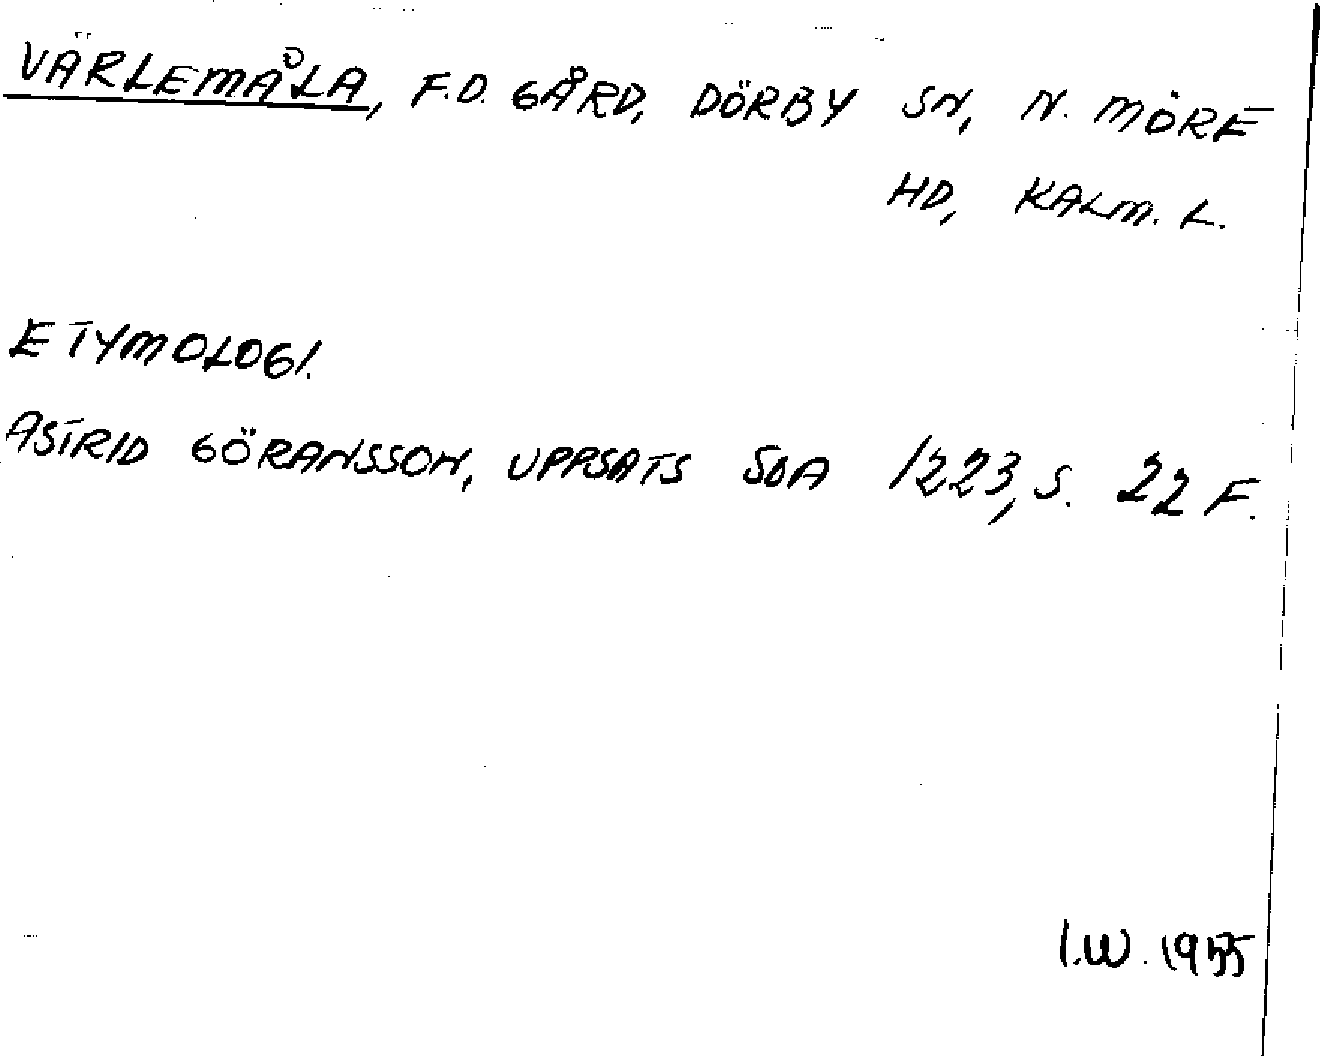 VÄRLEMÅLA, F.D. GÅRD, DÖRBY SN, N. MÖRE
HD, KALM. L.
ETYMOLOGI.
ASTRID GÖRANSSON, UPPSATS SOA 1223, S. 22 F.
I.W. 1955